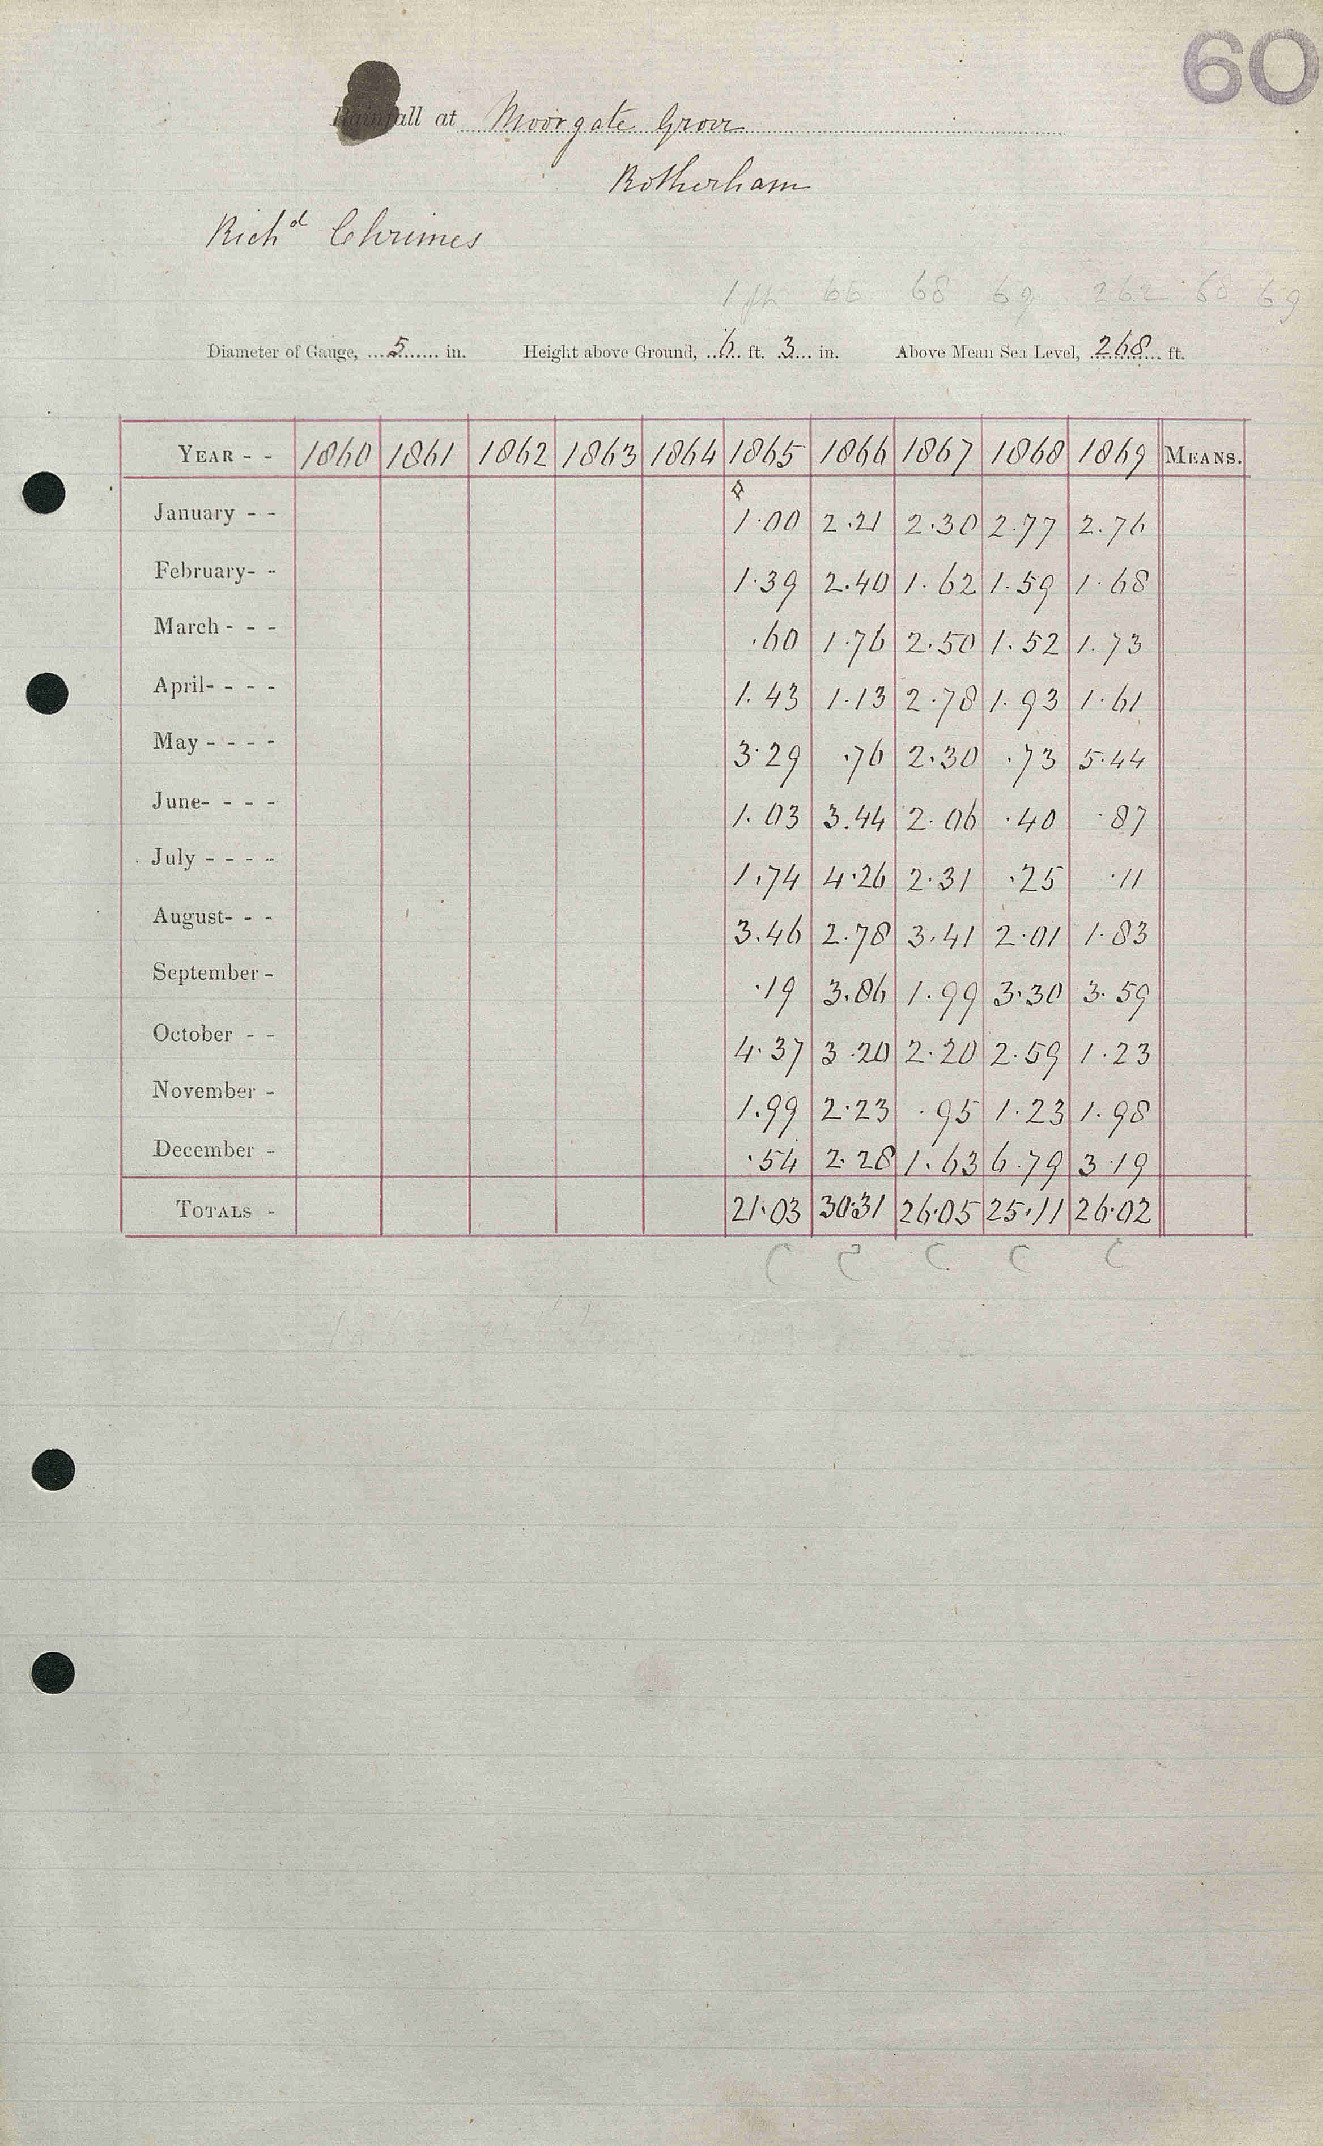 60
Rainfall at Moorgate Grove
Rotherham
Rich^d Chrimes
66 68 69 262 68 69
Diameter of Gauge, 5 in. Height above Ground, 6 ft. 3 in. Above Mean Sea Level, 268 ft.
YEAR - - 1860 1861 1862 1863 1864 1865 1866 1867 1868 1869 MEANS.
January - - 1.00 2.21 2.30 2.77 2.76
February- - 1.39 2.40 1.62 1.59 1.68
March - - - .60 1.76 2.50 1.52 1.73
April- - - - 1.43 1.13 2.78 1.93 1.61
May - - - - 3.29 .76 2.30 .73 5.44
June- - - - 1.03 3.44 2.06 .40 .87
July - - - - 1.74 4.26 2.31 .25 .11
August- - - 3.46 2.78 3.41 2.01 1.83
September - .19 3.86 1.99 3.30 3.59
October - - 4.37 3.20 2.20 2.59 1.23
November - 1.99 2.23 .95 1.23 1.98
December - .54 2.28 1.63 6.79 3.19
TOTALS - 21.03 30.31 26.05 25.11 26.02
C C C C C